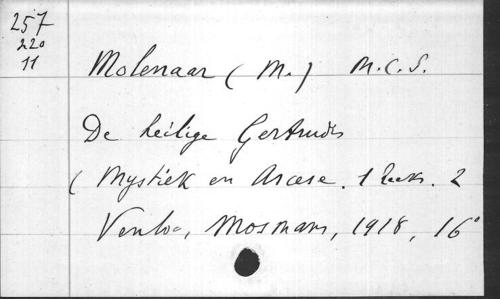 257
220
11
Molenaar (M.) M.C.S.
De heilige Gertrudis
(Mystiek en Ascese. 1 reeks. 2
Venloo, Mosmans, 1918, 16°